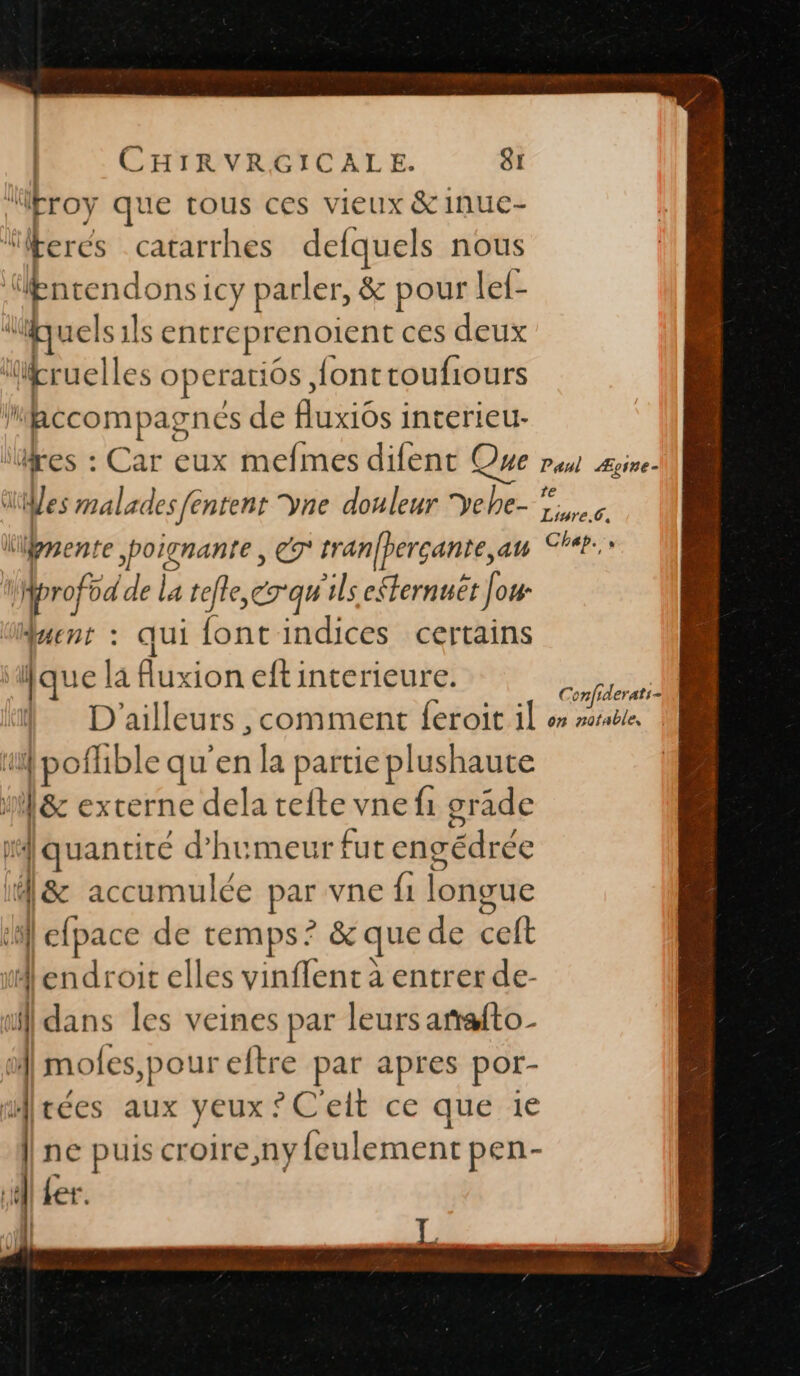 CHIRVRGICALE. 81
croy que tous ces vieux & inue-
terés catarrhes deſquels nous
entendons icy parler, & pour leſ-
quels ils entreprenoient ces deux
cruelles operatiõs, ſont touſiours
accompagnés de fluxiõs interieu-
res : Car eux meſmes diſent Que
les malades ſentent vne douleur vehe-
mente, poignante, & tranſperçante, au
profõd de la teſte, & qu'ils eſternuẽt ſou-
uent : qui ſont indices certains
que la fluxion eſt interieure.
D'ailleurs, comment ſeroit il
poſſible qu'en la partie plushaute
& externe dela teſte vne ſi grãde
quantité d'humeur fut engẽdrée
& accumulée par vne ſi longue
eſpace de temps? & que de ceſt
endroit elles vinſſent à entrer de-
dans les veines par leurs anaſto-
moſes, pour eſtre par apres por-
tées aux yeux? C'eſt ce que ie
ne puis croire, ny ſeulement pen-
ſer.
L
Paul Ægine-
te
Liure.6.
Chap.
Conſiderati-
on notable.